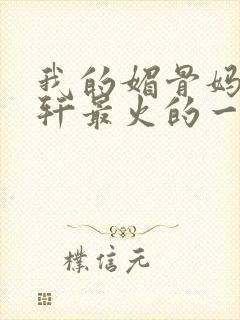 我的媚骨妈
轩最火的一
樸信元